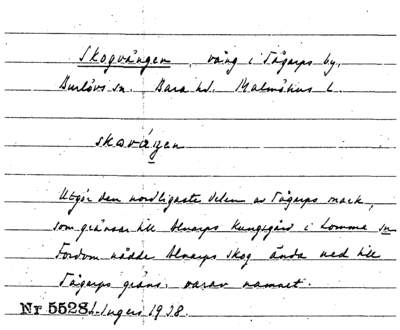 Skogvången, vång i Tågarps by,
Burlövs sn. Bara hd. Malmöhus l.
skovången
Utgör den nordligaste delen av Tågarps mark,
som gränsar till Alnarps Kungsgård i Lomma sn
Fordom nådde Alnarps skog ända ned till
Tågarps gräns. varav namnet.
Nr 5528. Ingers 1938.